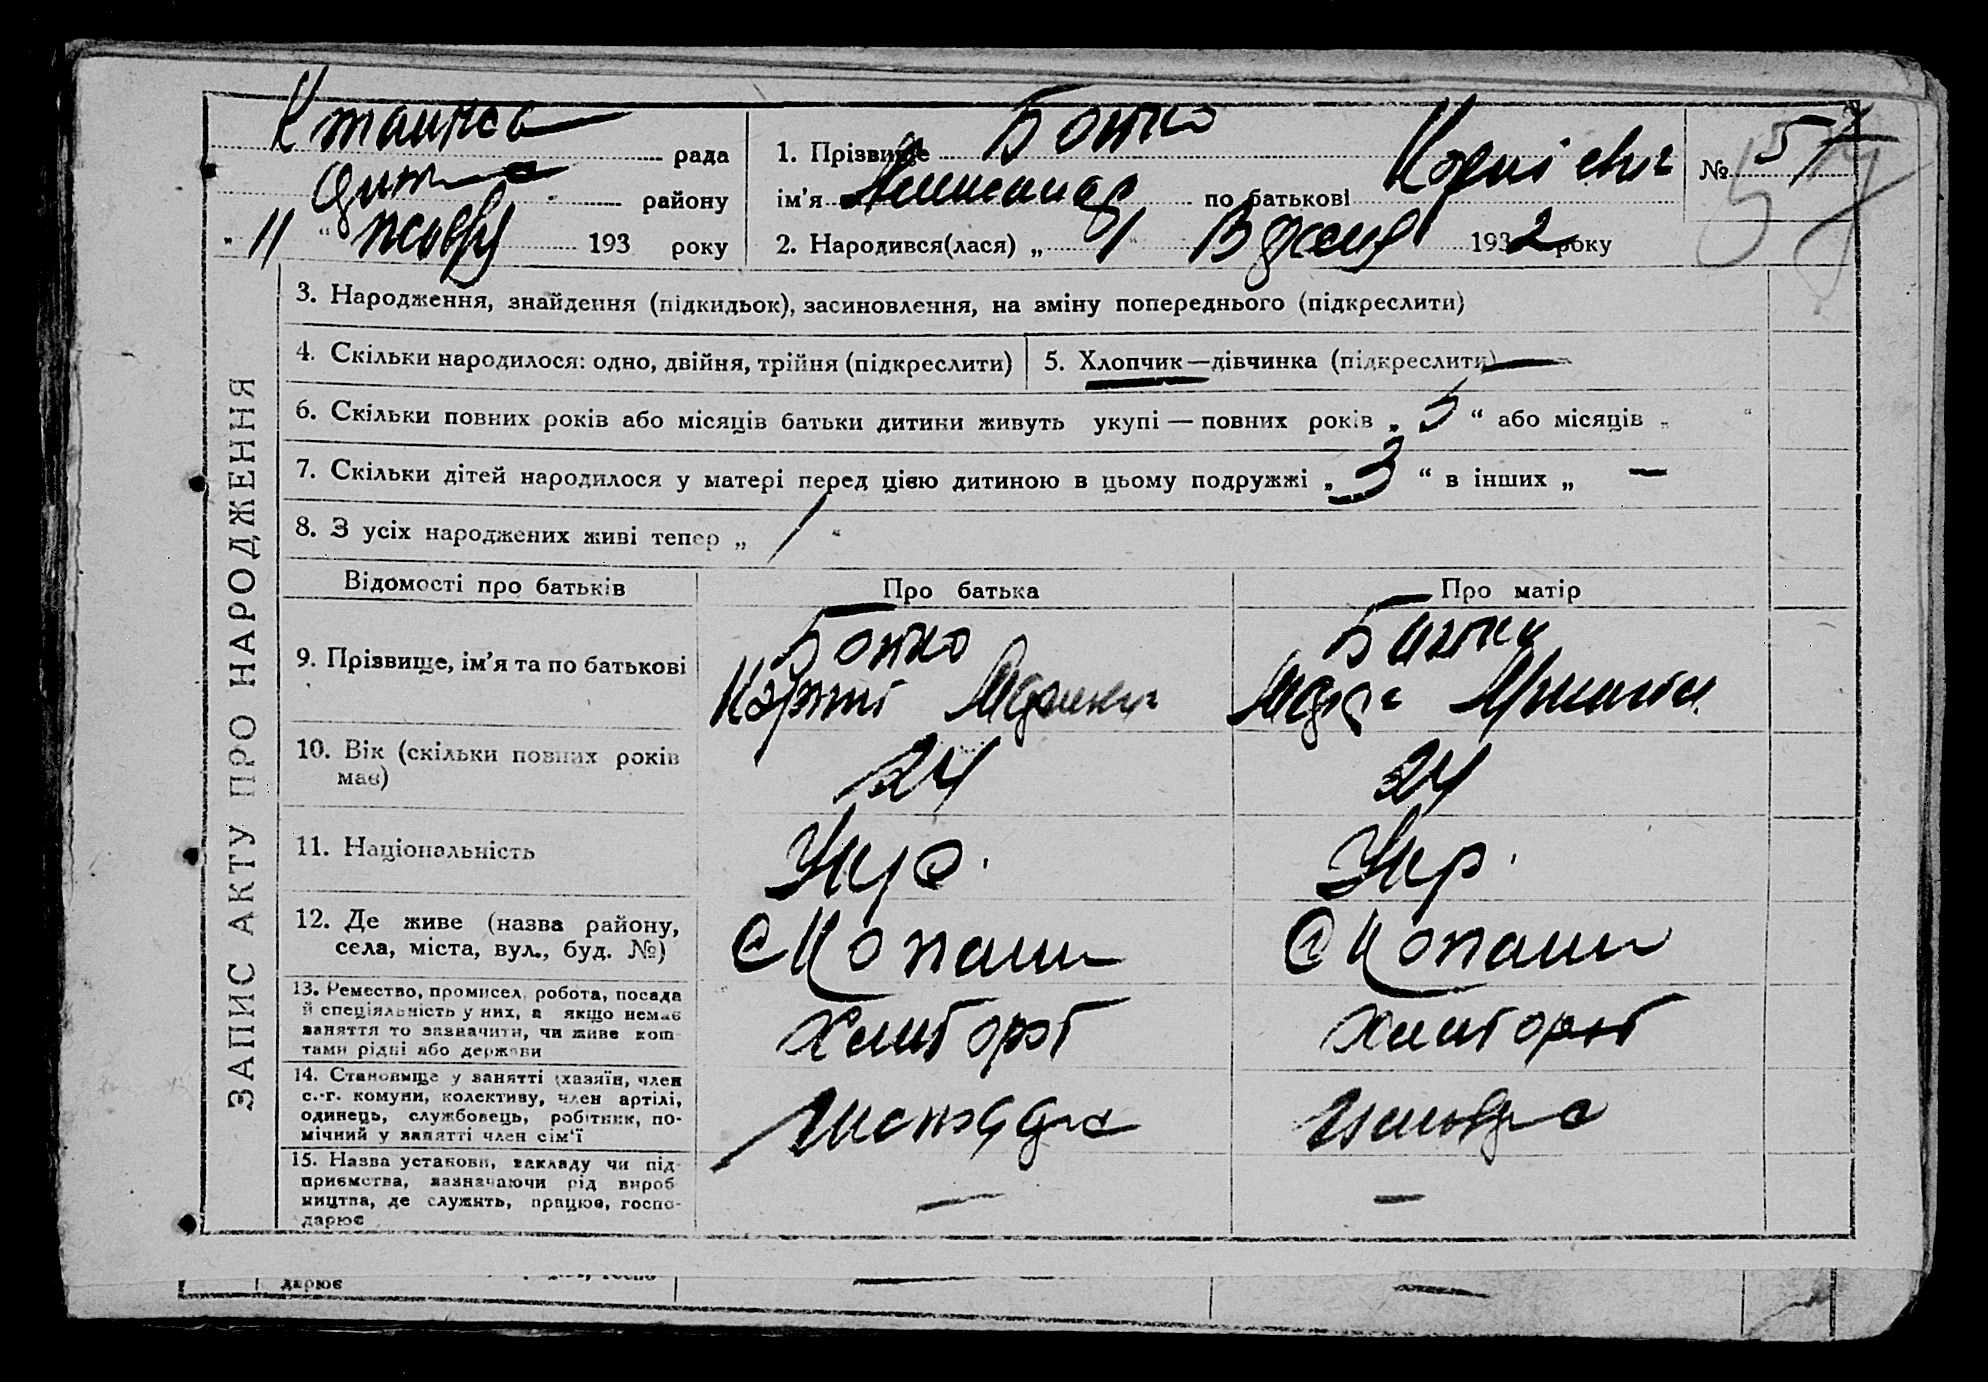 рада
району
" 11 " жовтня 193 року
1. Прізвище Божко
ім'я Олександр по батькові Корнієвич
№ 57
2. Народився(лася) „ “ 1932 року
ЗАПИС АКТУ ПРО НАРОДЖЕННЯ
3. Народження, знайдення (підкидьок), засиновлення, на зміну попереднього (підкреслити)
4. Скільки народилося: одно, двійня, трійня (підкреслити)
5. Хлопчик—дівчинка (підкреслити)
6. Скільки повних років або місяців батьки дитини живуть укупі — повних років „ 5 “ або місяців „ “
7. Скільки дітей народилося у матері перед цією дитиною в цьому подружжі „ 3 “ в інших „ —
8. З усіх народжених живі тепер „ 1 “
Відомості про батьків
Про батька
Про матір
9. Прізвище, ім'я та по батькові
Божко
Божко
10. Вік (скільки повних років
має)
24
24
11. Національність
Укр.
Укр.
12. Де живе (назва району,
села, міста, вул., буд. №)
с Копани
с Копани
13. Ремество, промисел, робота, посада
й спеціяльність у них, а якщо немає
заняття то зазначити, чи живе кош-
тами рідні або держави
Хлібороб
Хлібороб
14. Становище у занятті (хазяїн, член
с.-г. комуни, колективу, член артілі,
одинець, службовець, робітник, по-
мічний у занятті член сім'ї
15. Назва установи, закладу чи під-
приємства, зазначаючи рід вироб-
ництва, де служить, працює, госпо-
дарює
—
—
дарює